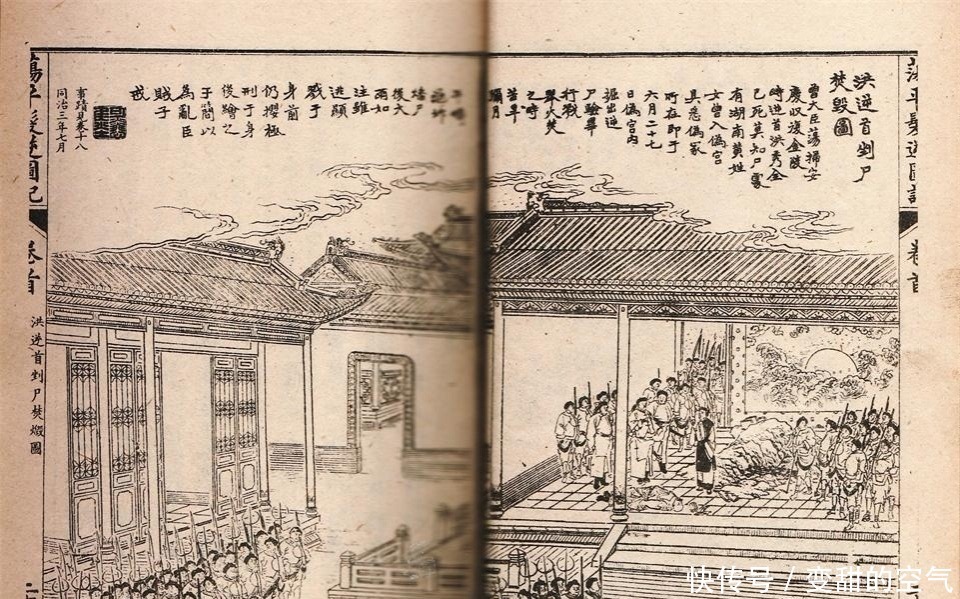 蕩平髮逆圖記
卷首
洪逆首剉尸
焚毀圖
曾大臣蕩掃安
慶收復金陵
時逆首洪秀全
已死莫知尸處
有湖南黃姓
女曾入偽宮
具悉偽冢
所在即于
六月二十七
日偽宮內
掘出逆
尸驗畢
行戮
舉火焚
之時
苦旱
彌月
尸
後大
雨如
注雖
逃顯
戮于
身前
仍攖極
刑于身
後繪之
于簡以
為亂臣
賊子
戒
事蹟見卷十八
同治三年七月
蕩平髮逆圖記
卷首
洪逆首剉尸焚燬圖
快传号 / 变甜的空气